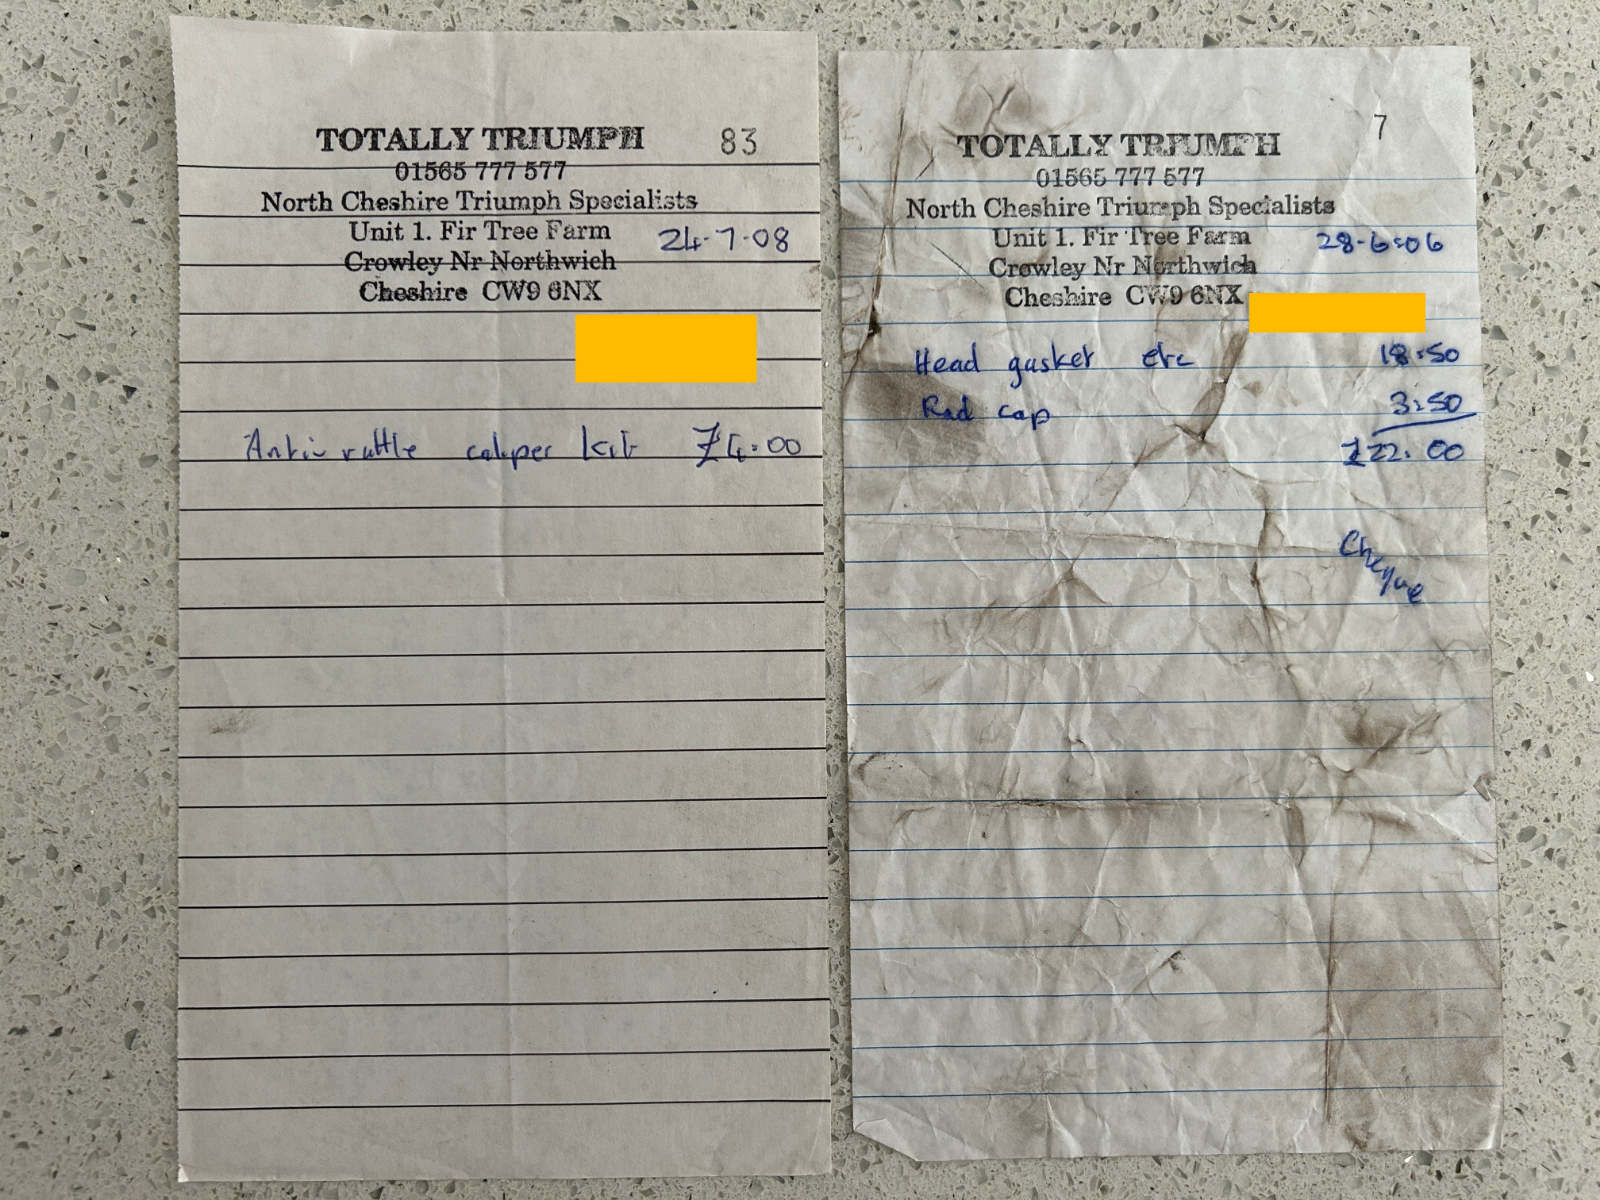 TOTALLY TRIUMPH 83
01565 777 577
North Cheshire Triumph Specialists
Unit 1. Fir Tree Farm 24-7-08
Crowley Nr Northwich
Cheshire CW9 6NX
Anti-rattle caliper kit £4:00
TOTALLY TRIUMPH 7
01565 777 577
North Cheshire Triumph Specialists
Unit 1. Fir Tree Farm 28-6-06
Crowley Nr Northwich
Cheshire CW9 6NX
Head gasket etc 18:50
Rad cap 3:50
£22.00
Cheque